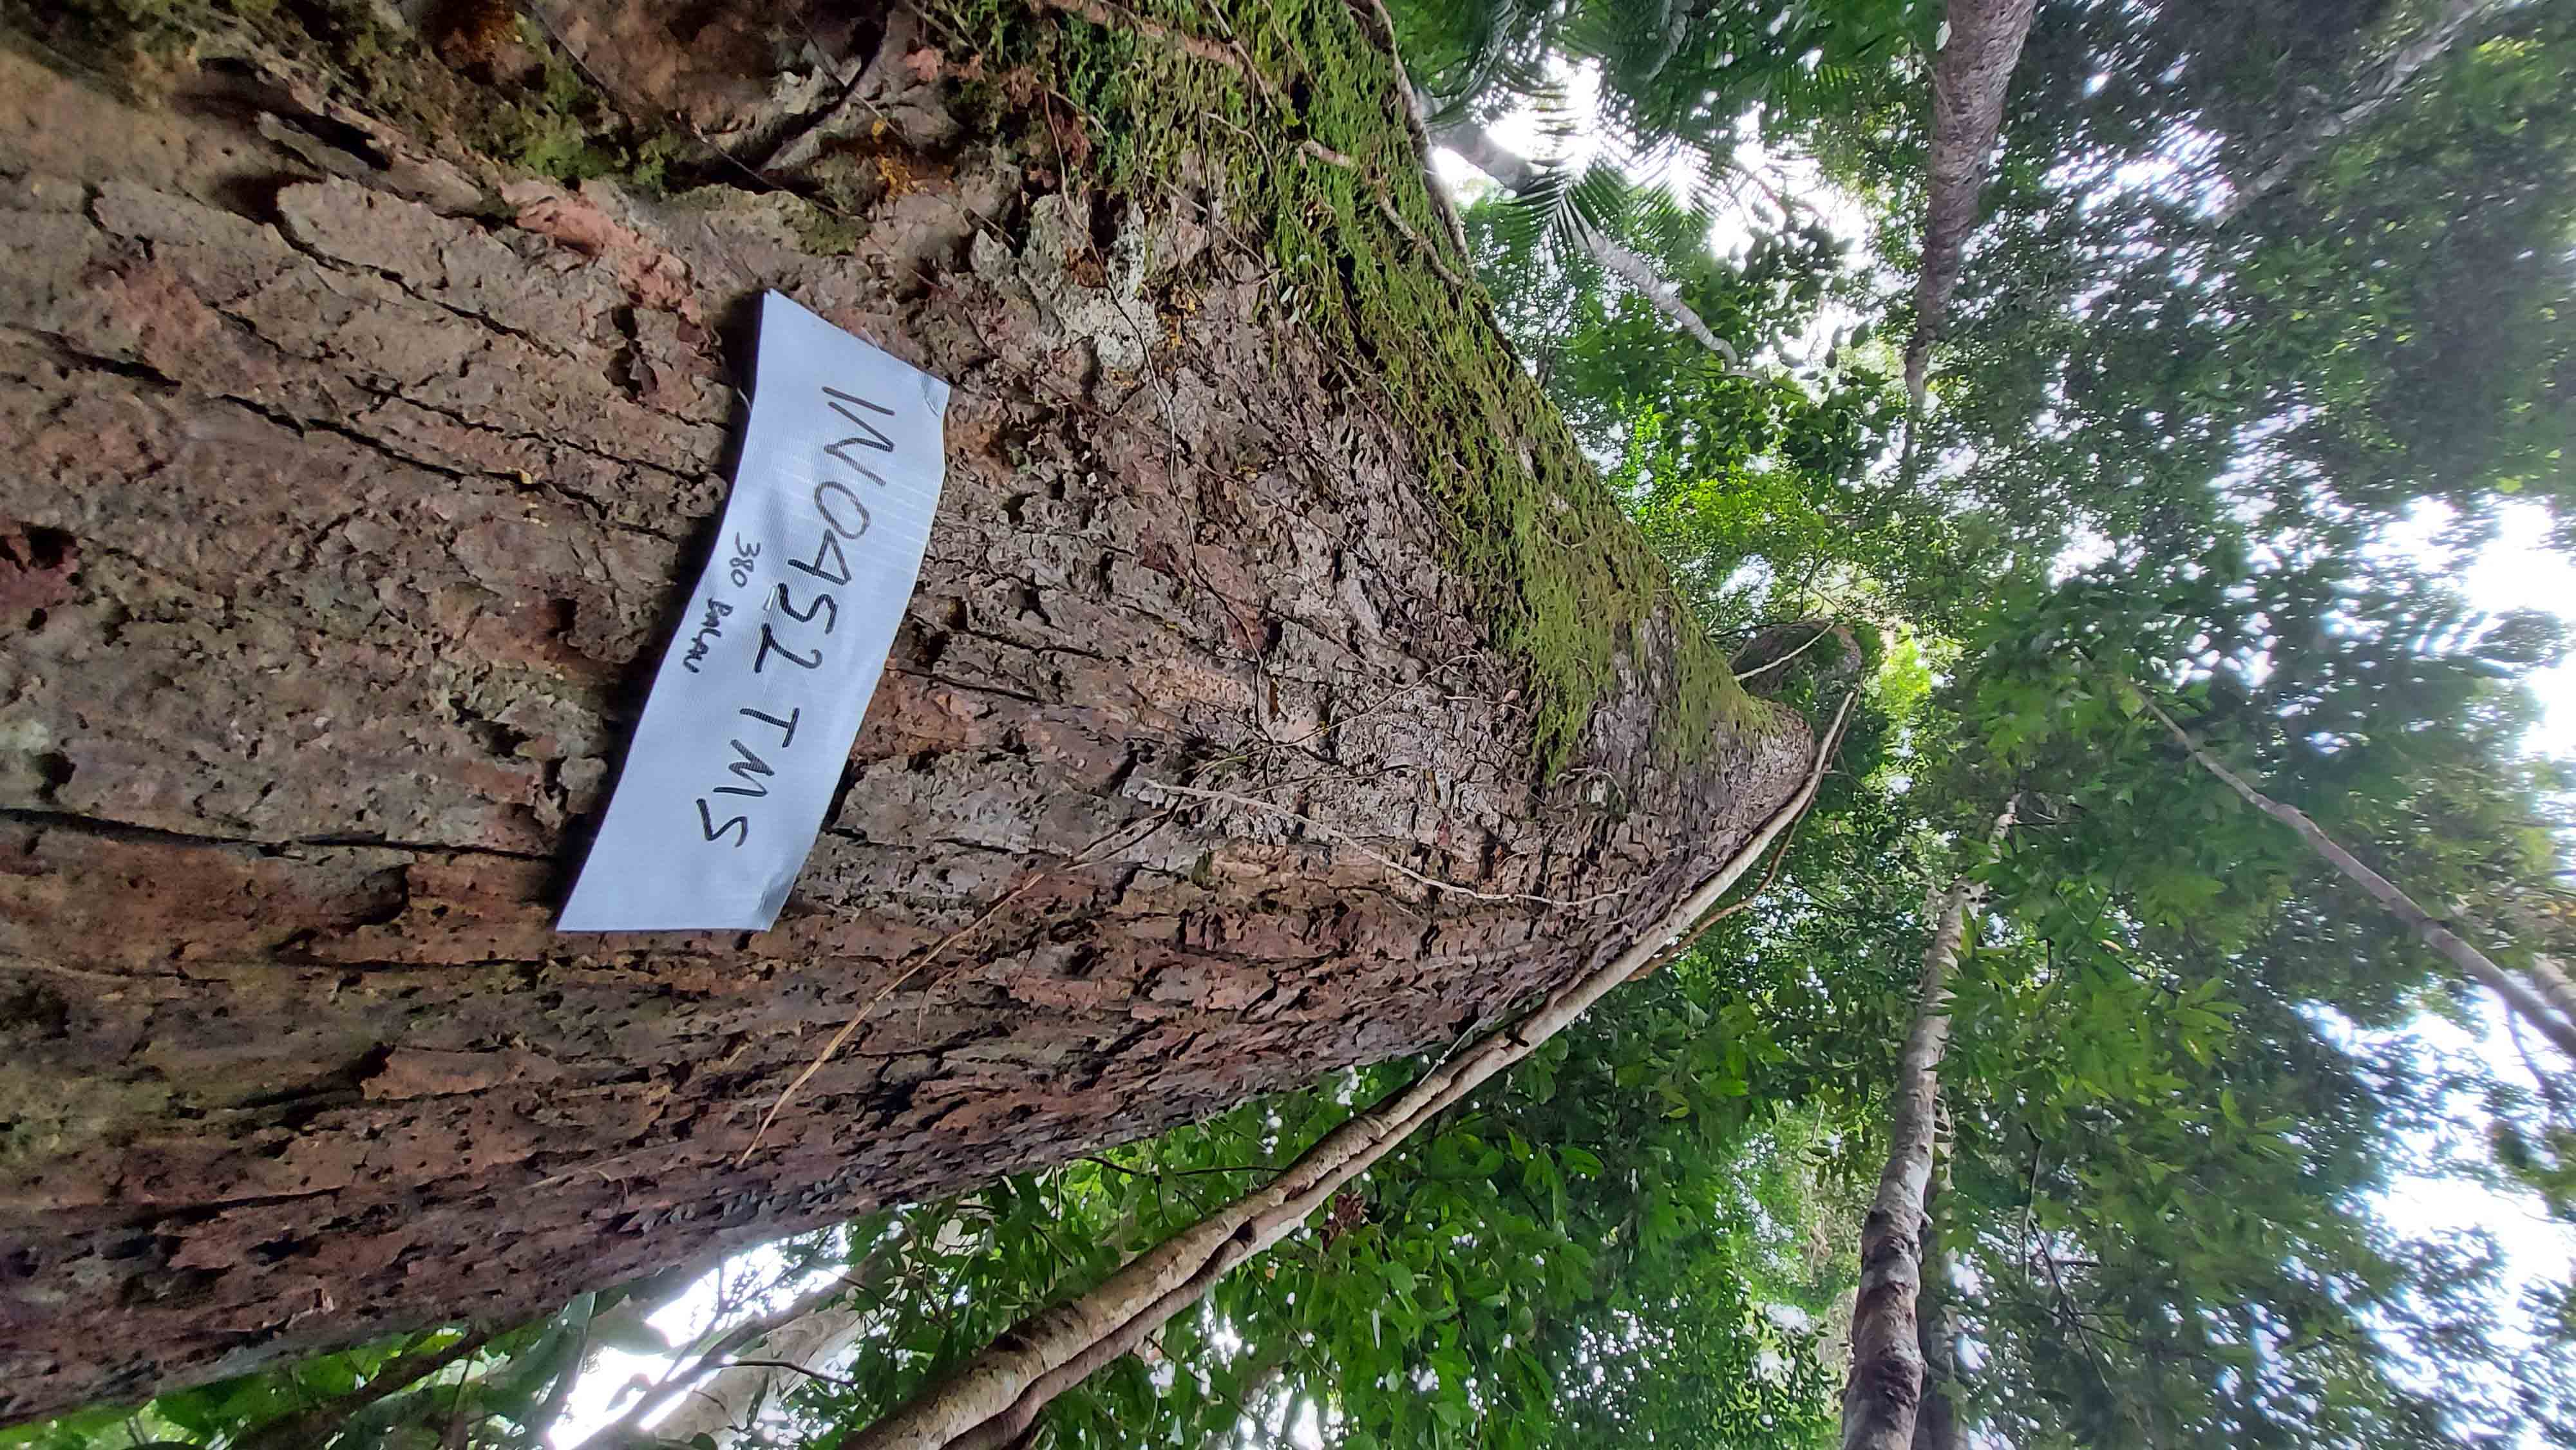 IN0452 TMS
380 BALAU